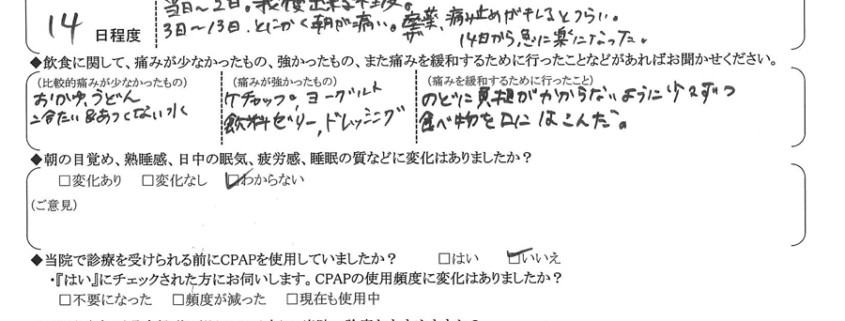 当日～2日。我慢出来る程度。
14 日程度
3日～13日、とにかく朝が痛い。座薬、痛み止めがキレるとつらい。
14日から急に楽になった。
◆飲食に関して、痛みが少なかったもの、強かったもの、また痛みを緩和するために行ったことなどがあればお聞かせください。
(比較的痛みが少なかったもの) (痛みが強かったもの) (痛みを緩和するために行ったこと)
おかゆ、うどん ケチャップ。ヨーグルト のどに負担がかからないように少しずつ
冷たい&あつくない水 飲料ゼリー,ドレッシング 食べ物を口にはこんだ。
◆朝の目覚め、熟睡感、日中の眠気、疲労感、睡眠の質などに変化はありましたか？
□変化あり □変化なし ☑わからない
(ご意見)
◆当院で診療を受けられる前にCPAPを使用していましたか？ □はい ☑いいえ
・『はい』にチェックされた方にお伺いします。CPAPの使用頻度に変化はありましたか？
□不要になった □頻度が減った □現在も使用中